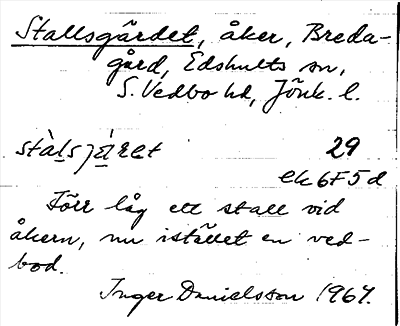 Stallsgärdet, åker, Breda-
gård, Edshults sn,
S. Vedbo hd, Jönk. l.
29
ek 6F5d
Förr låg ett stall vid
åkern, nu istället en ved-
bod.
Inger Danielsson 1967.